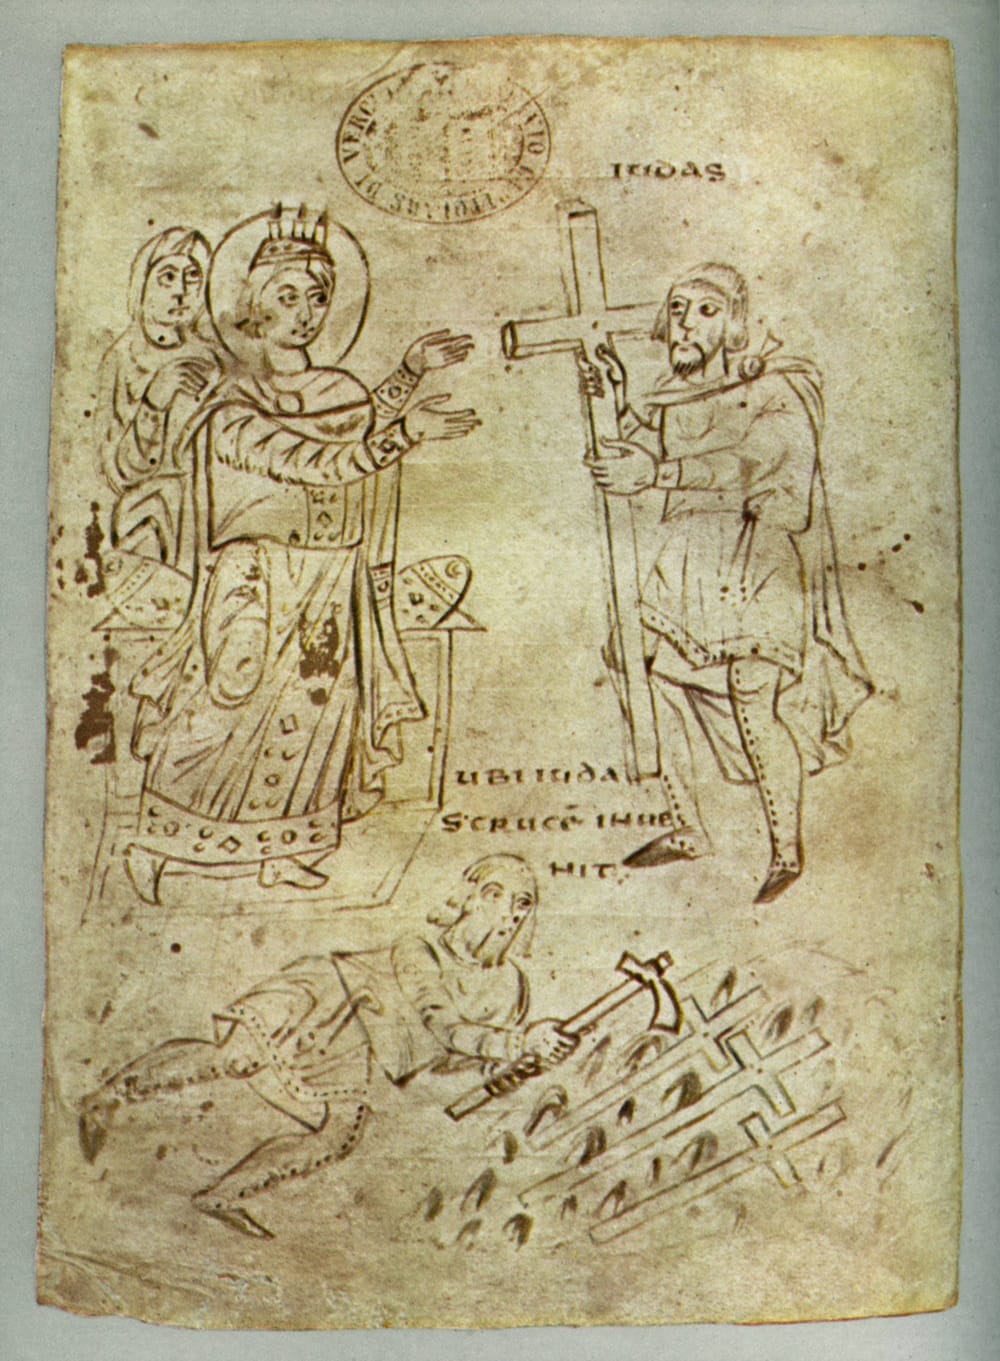 IUDAS
UBI IUDA
S CRUCĒ INUE
NIT.